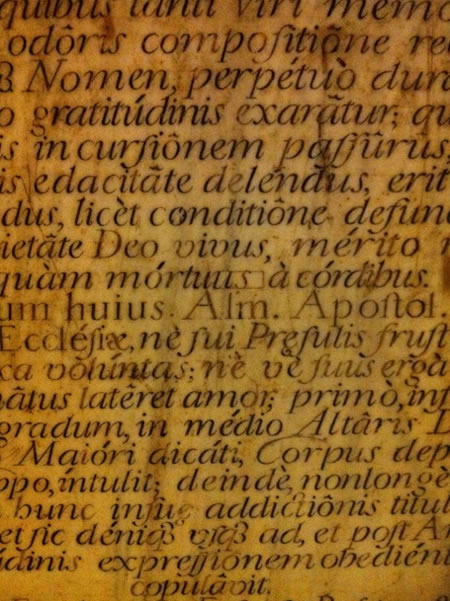 quibus tanti viri memo
odôris compoſitiône re
Nomen, perpétuò dura
o gratitúdinis exarâtur; qu
is incurſiônem paſſûrus,
is edacitâte delendus, erit
dus, licèt conditiône defunc
ietâte Deo vivus, mérito
quàm mórtuus à córdibus.
um huius Alm. Apoſtol.
Eccléſiæ, nè ſui Pręſulis fruſt
ca volúntas; nè vè ſuus ergà
nâtus latêret amor, primò, inf
gradum, in médio Altâris D
Maióri dicáti, Corpus dep
ppo, intulit; deindè, nonlongè
hunc inſuę addictiônis titul
et ſic déniqȝ uſqȝ ad, et poſt
údinis expreſſionem obedient
copulâvit.